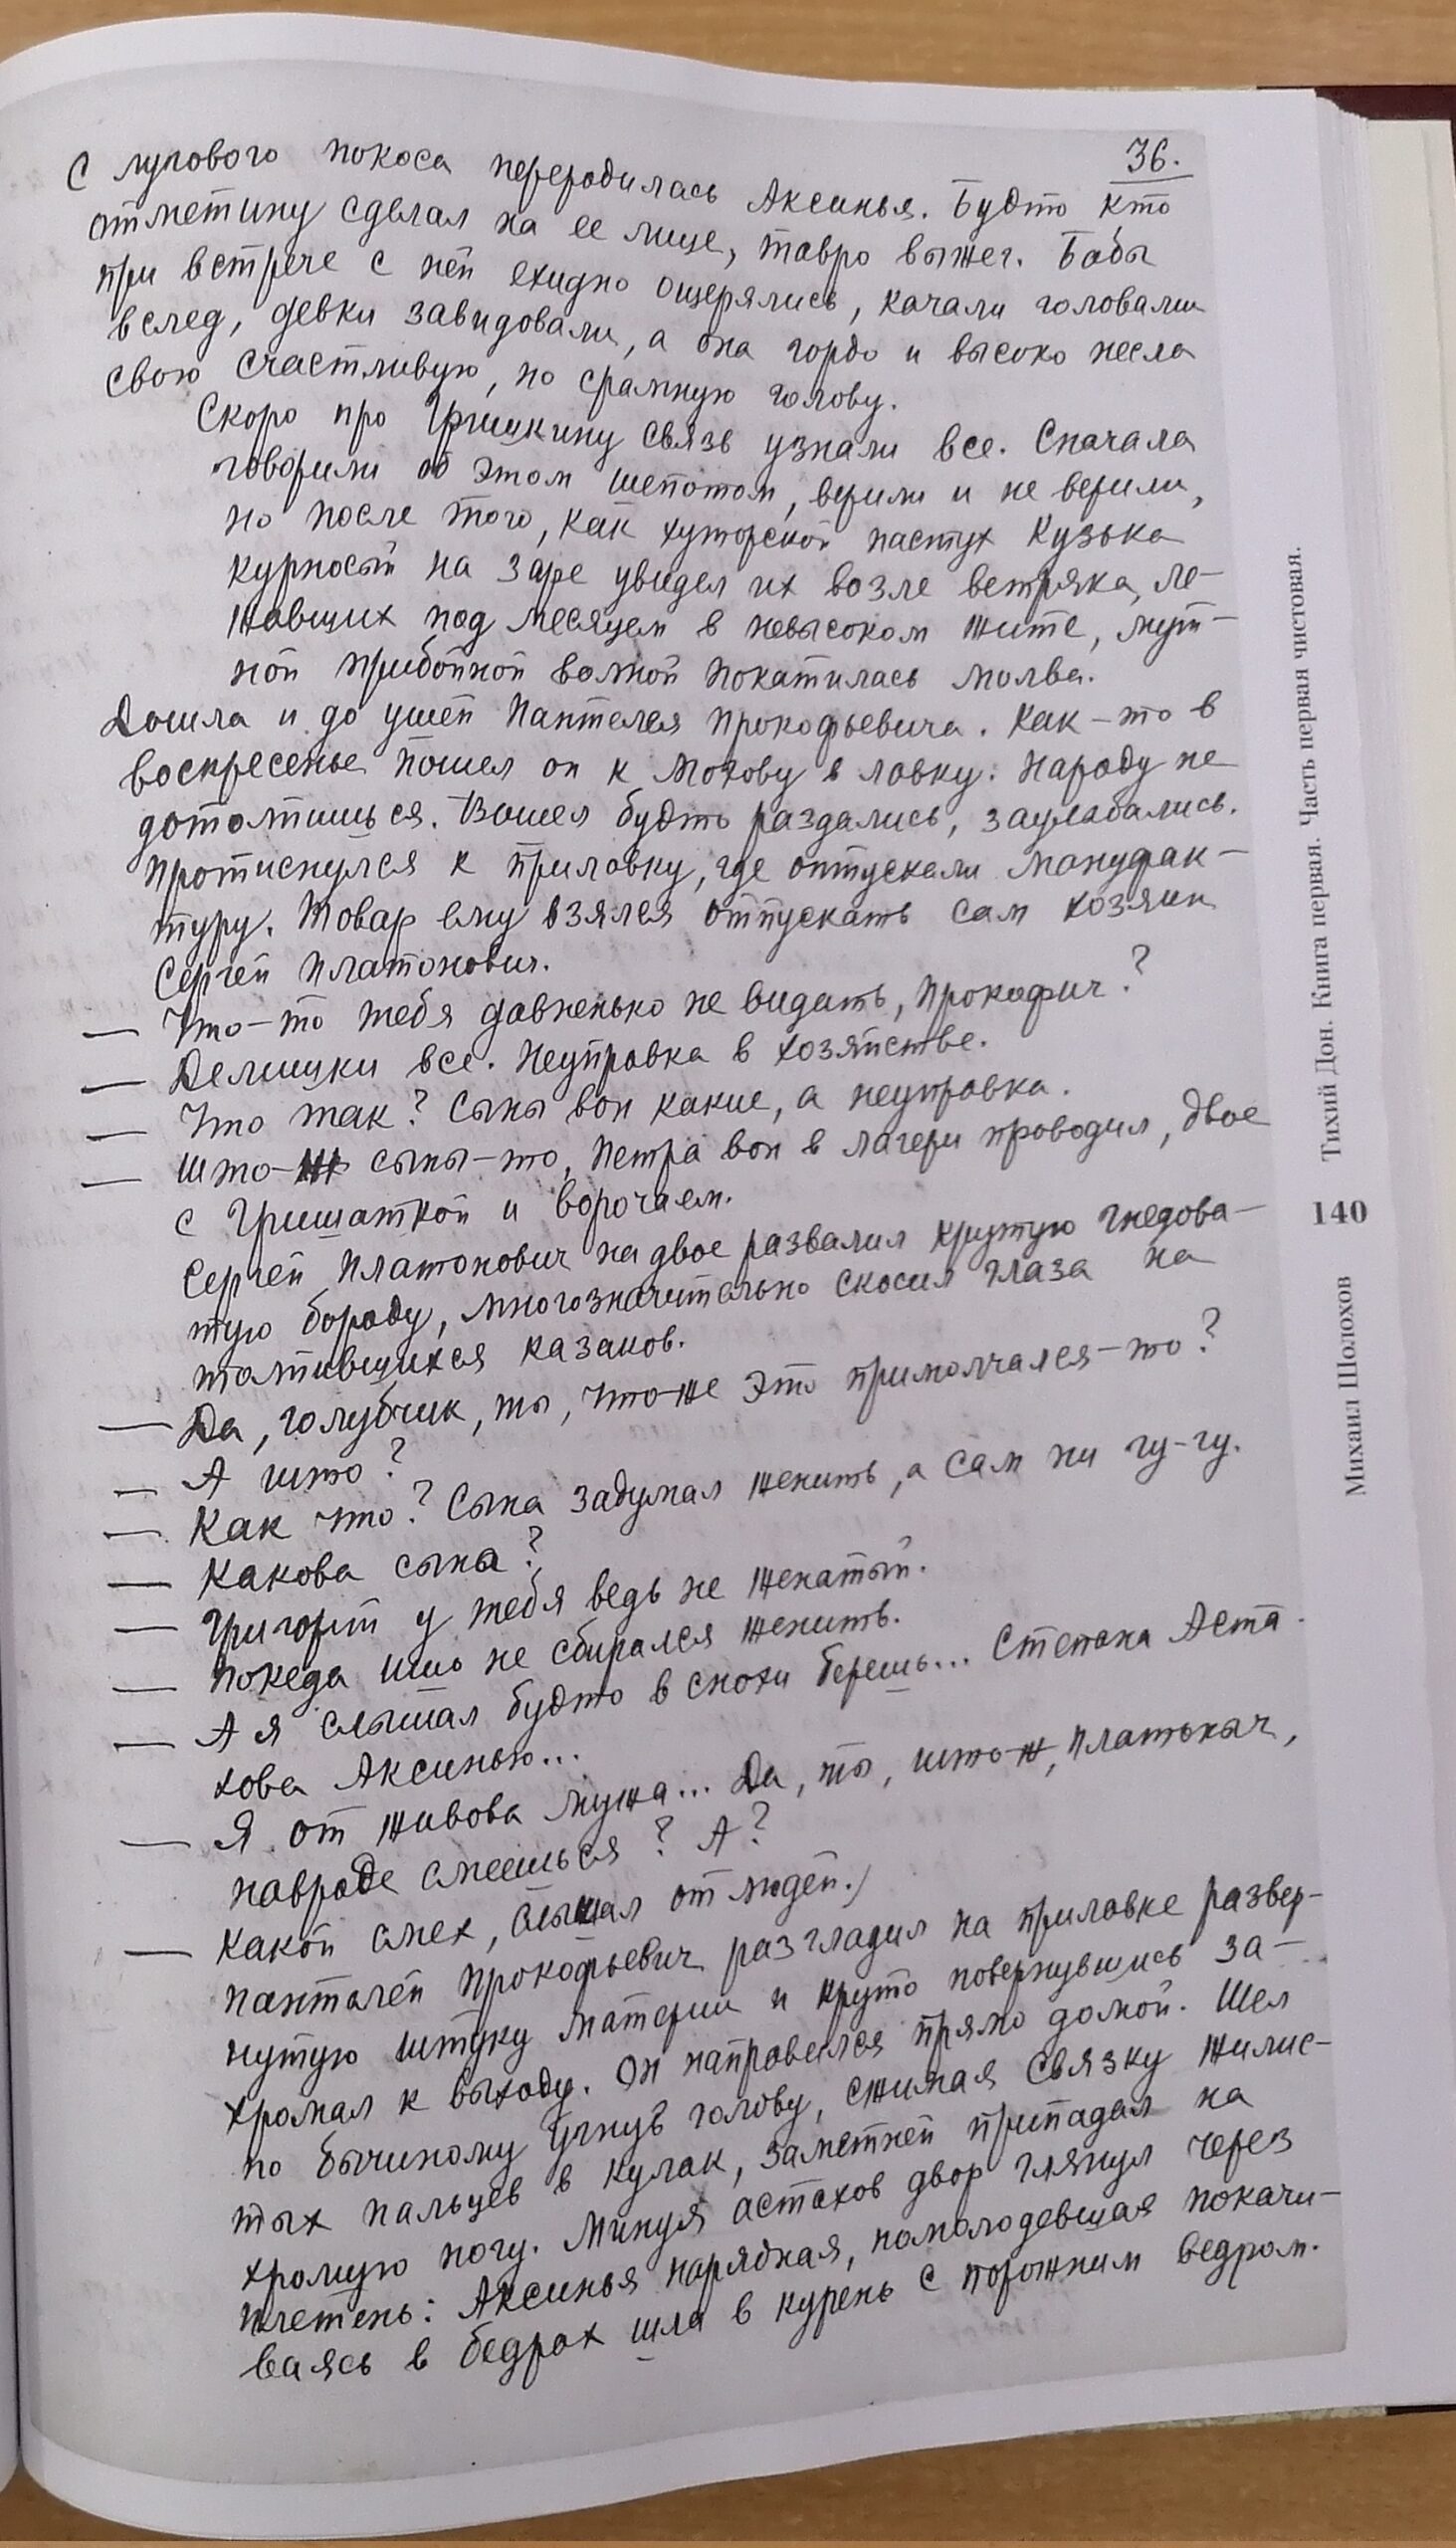 36.
С лугового покоса переродилась Аксинья. Будто кто
отметину сделал на ее лице, тавро выжег. Бабы
при встрече с ней ехидно ощерялись, качали головами
вслед, девки завидовали, а она гордо и высоко несла
свою счастливую, но срамную голову.
Скоро про Гришкину связь узнали все. Сначала
говорили об этом шепотом, верили и не верили,
но после того, как хуторской пастух Кузька
курносый на заре увидел их возле ветряка, ле-
жавших под месяцем в невысоком жите, мут-
ной прибойной волной покатилась молва.
Дошла и до ушей Пантелея Прокофьевича. Как-то в
воскресенье пошел он к Мохову в лавку. Народу не
дотолпишься. Вошел будто раздались, заулыбались.
Протиснулся к прилавку, где отпускали мануфак-
туру. Товар ему взялся отпускать сам хозяин
Сергей Платонович.
— Что-то тебя давненько не видать, Прокофич?
— Делишки все. Неуправка в хозяйстве.
— Что так? Сыны вон какие, а неуправка.
— Што-ж сыны-то, Петра вон в лагери проводил, двое
с Гришаткой и ворочаем.
Сергей Платонович на двое развалил крутую гнедова-
тую бороду, многозначительно скосил глаза на
толпившихся казаков.
— Да, голубчик, ты, что-же это примолчался-то?
— А што?
— Как что? Сына задумал женить, а сам ни гу-гу.
— Какова сына?
— Григорий у тебя ведь не женатый.
— Покеда ишо не сбирался женить.
— А я слышал будто в снохи берешь... Степана Аста-
хова Аксинью...
— Я от живова мужа... Да, ты, што-ж, Платоныч,
навроде смеешься? А?
— Какой смех, слышал от людей.
Пантелей Прокофьевич разгладил на прилавке развер-
нутую штуку материи и круто повернувшись за-
хромал к выходу. Он направился прямо домой. Шел
по бычиному угнув голову, сжимая связку жилис-
тых пальцев в кулак, заметней припадал на
хромую ногу. Минуя астахов двор глянул через
плетень: Аксинья нарядная, помолодевшая покачи-
ваясь в бедрах шла в курень с порожним ведром.
Михаил Шолохов 140 Тихий Дон. Книга первая. Часть первая чистовая.